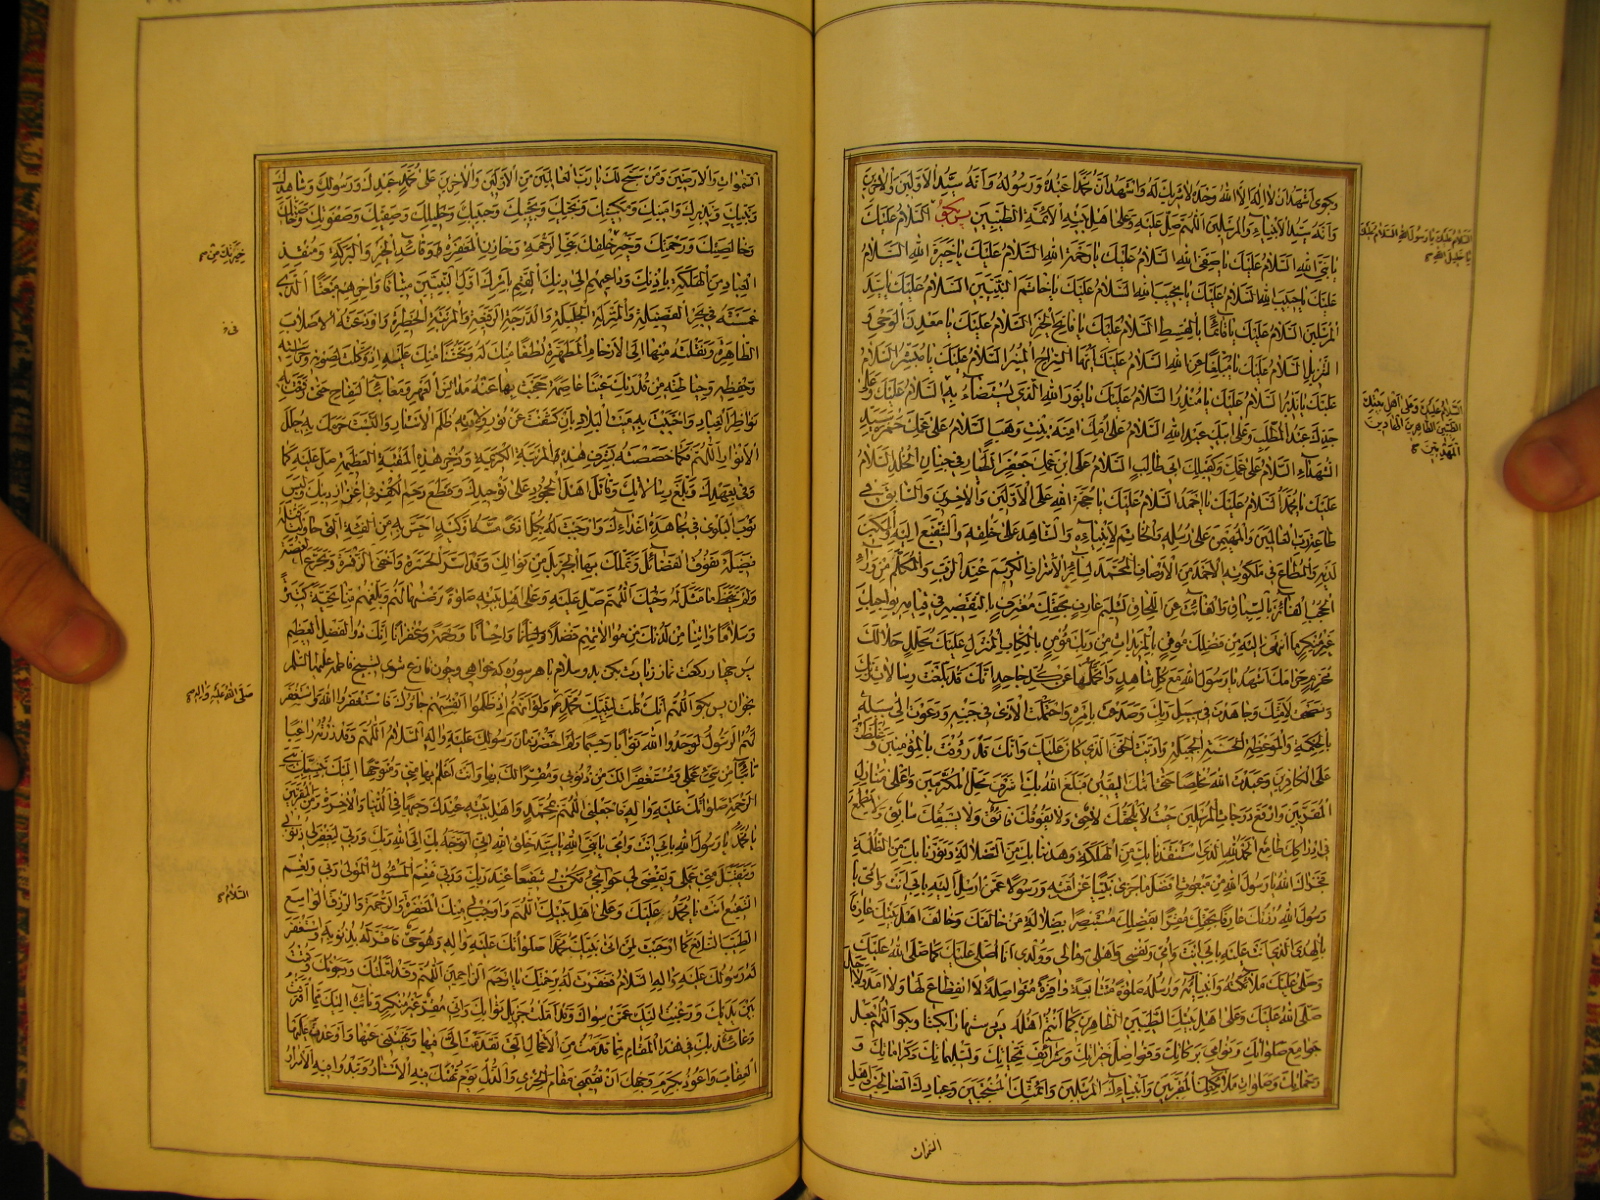 وبكوى اشهد ان لا اله الا الله وحده لا شريك له واشهد ان محمدا عبده ورسوله وانه سيد الاولين والاخرين
وانه سيد الانبياء والمرسلين اللهم صل عليه وعلى اهل بيته الائمة الطيبين پس بكو السلام عليك
يا نبى الله السلام عليك يا صفى الله السلام عليك يا رحمة الله السلام عليك يا خيرة الله السلام
عليك يا حبيب الله السلام عليك يا نجيب الله السلام عليك يا خاتم النبيين السلام عليك يا سيد
المرسلين السلام عليك يا قائما بالقسط السلام عليك يا فاتح الخير السلام عليك يا معدن الوحى و
التنزيل السلام عليك يا مبلغا عن الله السلام عليك ايها السراج المنير السلام عليك يا مبشر السلام
عليك يا نذير السلام عليك يا منذر السلام عليك يا نور الله الذى يستضاء به السلام عليك وعلى
جدك عبد المطلب وعلى ابيك عبد الله السلام على امك امنة بنت وهب السلام على عمك حمزة سيد
الشهداء السلام على عمك وكفيلك ابى طالب السلام على ابن عمك جعفر الطيار فى جنان الخلد السلام
عليك يا محمد السلام عليك يا احمد السلام عليك يا حجة الله على الاولين والاخرين والسابق فى
طاعة رب العالمين والمهيمن على رسله والخاتم لانبيائه والشاهد على خلقه والشفيع اليه والمكين
لديه والمطاع فى ملكوته الاحمد من الاوصاف المحمد لسائر الاشراف الكريم عند الرب والمكلم من وراء
الحجب الفائز بالسباق والفائت عن اللحاق تسليم عارف بحقك معترف بالتقصير فى قيامه بواجبك
غير منكر ما انتهى اليه من فضلك موقن بالمزيدات من ربك مؤمن بالكتاب المنزل عليك محلل حلالك
محرم حرامك اشهد يا رسول الله مع كل شاهد واتحملها عن كل جاحد انك قد بلغت رسالات ربك
ونصحت لامتك وجاهدت فى سبيل ربك وصدعت بامره واحتملت الاذى فى جنبه ودعوت الى سبيله
بالحكمة والموعظة الحسنة الجميلة واديت الحق الذى كان عليك وانك قد رؤفت بالمؤمنين وغلظت
على الكافرين وعبدت الله مخلصا حتى اتاك اليقين فبلغ الله بك اشرف محل المكرمين واعلى منازل
المقربين وارفع درجات المرسلين حيث لا يلحقك لاحق ولا يفوقك فائق ولا يسبقك سابق ولا يطمع
فى ادراكك طامع الحمد لله الذى استنقذنا بك من الهلكة وهدانا بك من الضلالة ونورنا بك من الظلمة
فجزاك الله يا رسول الله من مبعوث افضل ما جزى نبيا عن امته ورسولا عمن ارسل اليه بابى انت وامى يا
رسول الله زرتك عارفا بحقك مقرا بفضلك مستبصرا بضلالة من خالفك وخالف اهل بيتك عارفا
بالهدى الذى انت عليه بابى انت وامى ونفسى واهلى ومالى وولدى انا اصلى عليك كما صلى الله عليك
وصلى عليك ملائكته وانبياؤه ورسله صلوة متتابعة وافرة متواصلة لا انقطاع لها ولا امد ولا اجل
صلى الله عليك وعلى اهل بيتك الطيبين الطاهرين كما انتم اهله پس دستها را بكشا وبكو اللهم اجعل
جوامع صلواتك ونوامى بركاتك وفواضل خيراتك وشرائف تحياتك وتسليماتك وكراماتك و
رحماتك وصلوات ملائكتك المقربين وانبيائك المرسلين وائمتك المنتجبين وعبادك الصالحين واهل
السلام عليك يا رسول الله السلام عليك
يا خليل الله
السلام عليك وعلى اهل بيتك
الطيبين الطاهرين الهادين
المهديين
السموات
السموات والارضين ومن سبح لك يا رب العالمين من الاولين والاخرين على محمد عبدك ورسولك وشاهدك
ونبيك ونذيرك وامينك ومكينك ونجيك ونجيبك وحبيبك وخليلك وصفيك وصفوتك وخاصتك
وخالصتك ورحمتك وخير خلقك نبى الرحمة وخازن المغفرة وقائد الخير والبركة ومنقذ
العباد من الهلكة باذنك وداعيهم الى دينك القيم بامرك اول النبيين ميثاقا واخرهم مبعثا الذى
غمسته فى بحر الفضيلة والمنزلة الجليلة والدرجة الرفيعة والمرتبة الخطيرة واودعته الاصلاب
الطاهرة ونقلته منها الى الارحام المطهرة لطفا منك له وتحننا منك عليه اذ وكلت لصونه وحراسته
وحفظه وحياطته من قدرتك عينا عاصمة حجبت بها عنه مدانس العهر ومعائب السفاح حتى رفعت به
نواظر العباد واحييت به ميت البلاد بان كشفت عن نور ولادته ظلم الاستار والبست حرمك به حلل
الانوار اللهم فكما خصصته بشرف هذه المرتبة الكريمة وذخر هذه المنقبة العظيمة صل عليه كما
وفى بعهدك وبلغ رسالاتك وقاتل اهل الجحود على توحيدك وقطع رحم الكفر فى اعزاز دينك ولبس
ثوب البلوى فى مجاهدة اعدائك واوجبت له بكل اذى مسه او كيد احس به من الفئة التى حاولت قتله
فضيلة تفوق الفضائل ويملك بها الجزيل من نوالك وقد اسر الحسرة واخفى الزفرة وتجرع الغصة
ولم يتخط ما مثل له وحيك اللهم صل عليه وعلى اهل بيته صلوة ترضاها لهم وبلغهم منا تحية كثيرة
وسلاما واتنا من لدنك فى موالاتهم فضلا واحسانا ورحمة وغفرانا انك ذو الفضل العظيم
پس چهار ركعت نماز زيارت بكن بدو سلام با هر سوره كه خواهى وچون فارغ شوى تسبيح فاطمه عليها السلام
بخوان پس بكو اللهم انك قلت لنبيك محمد ولو انهم اذ ظلموا انفسهم جاؤك فاستغفروا الله واستغفر
لهم الرسول لوجدوا الله توابا رحيما ولم احضر زمان رسولك عليه واله السلام اللهم وقد زرته راغبا
تائبا من سىء عملى ومستغفرا لك من ذنوبى ومقرا لك بها وانت اعلم بها منى ومتوجها اليك بنبيك نبى
الرحمة صلواتك عليه واله فاجعلنى اللهم بمحمد واهل بيته عندك وجيها فى الدنيا والاخرة ومن المقربين
يا محمد يا رسول الله بابى انت وامى يا نبى الله يا سيد خلق الله انى اتوجه بك الى الله ربك وربى ليغفر لى ذنوبى
ويتقبل منى عملى ويقضى لى حوائجى فكن لى شفيعا عند ربك وربى فنعم المسئول المولى ربى ونعم
الشفيع انت يا محمد عليك وعلى اهل بيتك اللهم واوجب لى منك المغفرة والرحمة والرزق الواسع
الطيب النافع كما اوجبت لمن اتى نبيك محمدا صلواتك عليه واله وهو حى فاقر له بذنوبه واستغفر
له رسولك عليه واله السلام فغفرت له برحمتك يا ارحم الراحمين اللهم وقد املتك ورجوتك وقمت
بين يديك ورغبت اليك عمن سواك وقد املت جزيل ثوابك وانى مقر غير منكر وتائب اليك مما اقترفت
وعائذ بك فى هذا المقام مما قدمت من الاعمال التى تقدمت الى فيها ونهيتنى عنها واوعدت عليها
العقاب واعوذ بكرم وجهك ان تقيمنى مقام الخزى والذل يوم تهتك فيه الاستار وتبدو فيه الاسرار
خيرتك من
صلى الله عليه واله
السلام